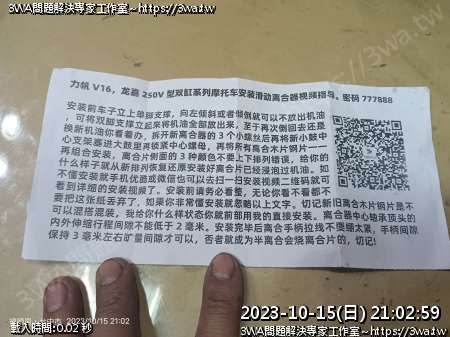 3WA問題解決專家工作室~https://3wa.tw
力帆 V16，龙嘉 250V 型双缸系列摩托车安装滑动离合器视频指导。密码 777888
安装前车子立上单脚支撑，向左倾斜或者倾倒就可以不放出机油
，可将双脚支撑立起来将机油全部放出来，至于再次倒回去还是
换新机油你看着办，拆开新离合器的 3 个小螺丝后再将新小鼓中
心支架塞进大鼓里再锁紧中心螺母，再将所有离合木片钢片一一
再组合安装，离合片侧面的 3 种颜色不要上下排列错误，给你的
什么样子就从新排列恢复还原安装好离合片已经浸泡过机油。如
不懂安装就手机优酷或微信也可以去扫一扫安装视频二维码就可
看到详细的安装视频了。安装前请务必看懂，无论你看不看都不
要把这张纸丢弃了，如果你非常懂安装就忽略以上文字。切记新旧离合木片钢片是不
可以混搭混装，我给你什么样状态你就前部用我的直接安装。离合器中心轴承顶头的
内外伸缩行程间隙不能低于 2 毫米。安装完毕后离合手柄拉线不要绷太紧，手柄间隙
保持 3 毫米左右旷量间隙才可以，否者就成为半离合会烧离合片的，切记！
2023-10-15(日) 21:02:59
2023/10/15 21:02
載入時間：0.02 秒
3WA問題解決專家工作室~https://3wa.tw